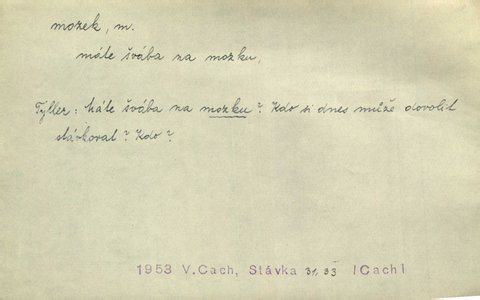 mozek, m.
máte švába na mozku,
Tyller: Máte švába na mozku? Kdo si dnes může dovolit
stávkovat? Kdo?
1953 V.Cach, Stávka 31, 33 [Cach]